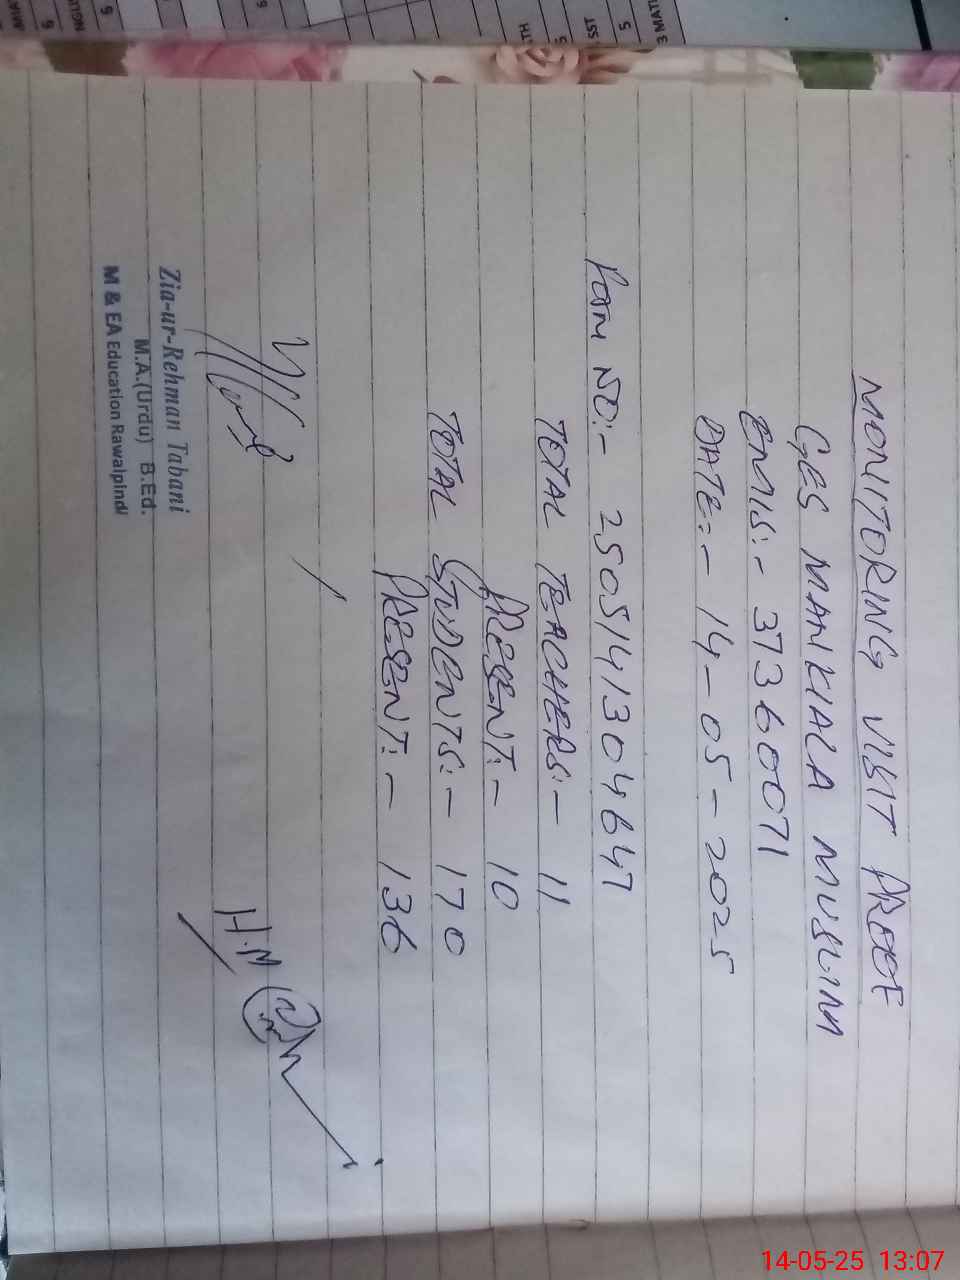 MONITORING VISIT PROOF
GES MANKIALA MUSLIM
EMIS:- 37360071
DATE:- 14-05-2025
Form NO:- 2505141304647
TOTAL TEACHERS:- 11
PRESENT:- 10
TOTAL STUDENTS:- 170
PRESENT:- 136
H.M
Zia-ur-Rehman Tabani
M.A.(Urdu) B.Ed.
M & EA Education Rawalpindi
14-05-25 13:07